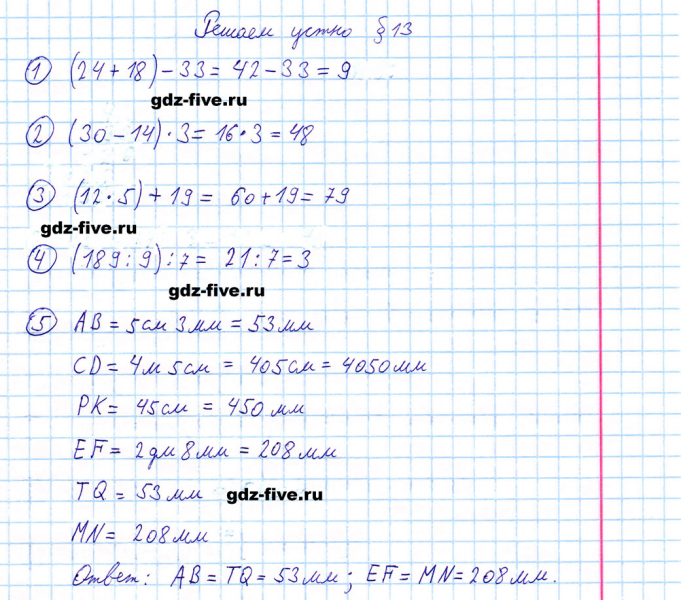 Решаем устно § 13
① (24 + 18) - 33 = 42 - 33 = 9
gdz-five.ru
② (30 - 14) · 3 = 16 · 3 = 48
③ (12 · 5) + 19 = 60 + 19 = 79
gdz-five.ru
④ (189 : 9) : 7 = 21 : 7 = 3
gdz-five.ru
⑤ AB = 5см 3мм = 53мм
CD = 4м 5см = 405см = 4050мм
PK = 45см = 450мм
EF = 2дм 8мм = 208мм
TQ = 53мм gdz-five.ru
MN = 208мм
Ответ: AB = TQ = 53мм; EF = MN = 208мм.